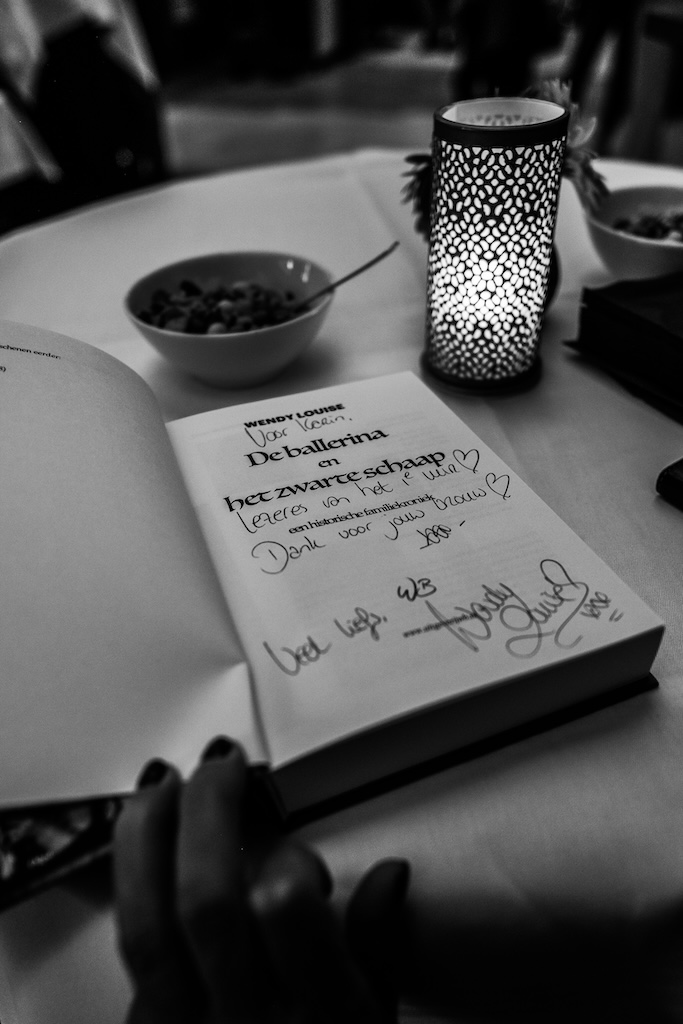 schenen eerder:
WENDY LOUISE
Voor Kevin,
De ballerina
en
het zwarte schaap
Lezeres van het 1e uur ♡
een historische familiekroniek
Dank voor jouw trouw ♡
xxx-
WB
Veel liefs, Wendy
Louise
www.uitgeverij
xxx